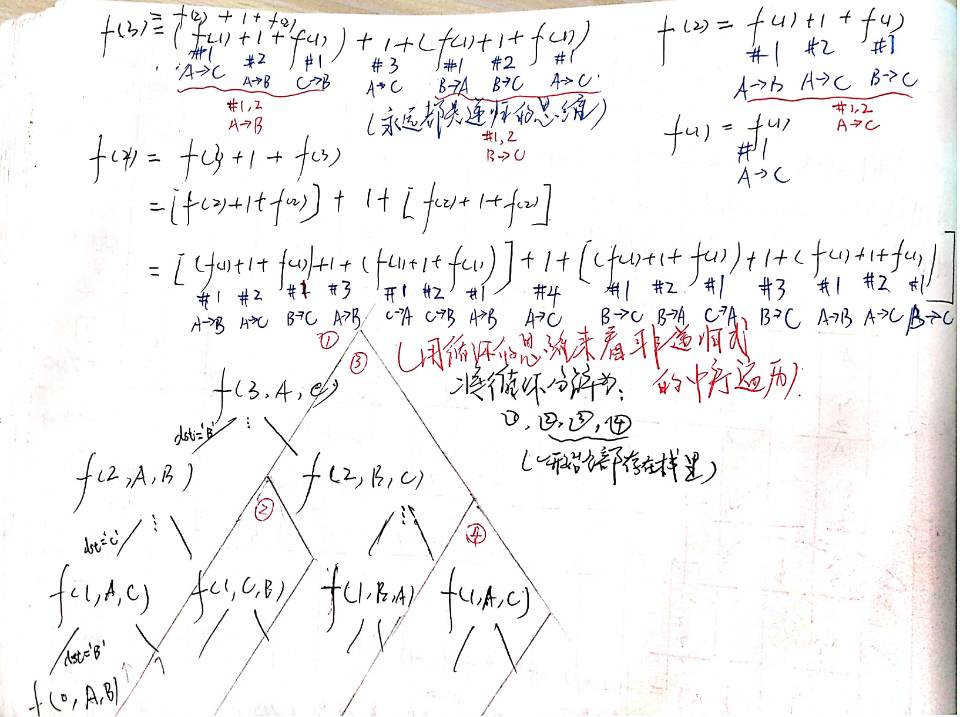 f(2) + 1 + f(2)
f(3) = (f(1) + 1 + f(1)) + 1 + (f(1) + 1 + f(1))
#1 #2 #1 #3 #1 #2 #1
A→C A→B C→B A→C B→A B→C A→C
#1,2
A→B
(永远都是递归的思维)
#1,2
B→C
f(2) = f(1) + 1 + f(1)
#1 #2 #1
A→B A→C B→C
#1,2
A→C
f(1) = f(1)
#1
A→C
f(4) = f(3) + 1 + f(3)
= [f(2) + 1 + f(2)] + 1 + [f(2) + 1 + f(2)]
= [(f(1) + 1 + f(1)) + 1 + (f(1) + 1 + f(1))] + 1 + [(f(1) + 1 + f(1)) + 1 + (f(1) + 1 + f(1))]
#1 #2 #1 #3 #1 #2 #1 #4 #1 #2 #1 #3 #1 #2 #1
A→B A→C B→C A→B C→A C→B A→B A→C B→C B→A C→A B→C A→B A→C B→C
① ③
(用循环的思维来看非递归式
的中序遍历)
将循环分解为:
①,②,③,④
(开始全部存在栈里)
f(3,A,C)
dst='B'
f(2,A,B) f(2,B,C)
② ④
dst='C'
f(1,A,C) f(1,C,B) f(1,B,A) f(1,A,C)
dst='B'
f(0,A,B)